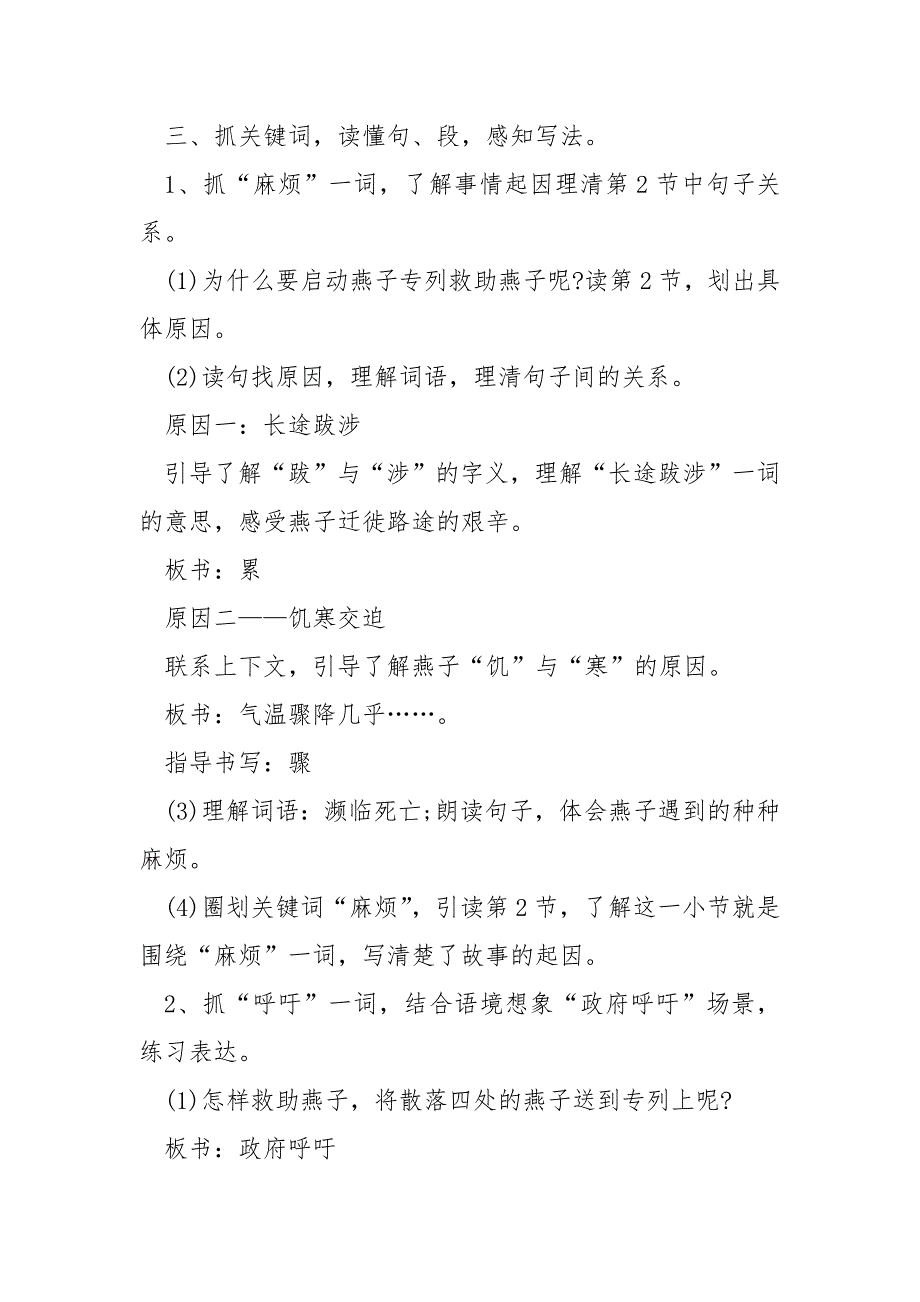 三、抓关键词，读懂句、段，感知写法。
1、抓“麻烦”一词，了解事情起因理清第2节中句子关
系。
(1)为什么要启动燕子专列救助燕子呢?读第2节，划出具
体原因。
(2)读句找原因，理解词语，理清句子间的关系。
原因一：长途跋涉
引导了解“跋”与“涉”的字义，理解“长途跋涉”一词
的意思，感受燕子迁徙路途的艰辛。
板书：累
原因二——饥寒交迫
联系上下文，引导了解燕子“饥”与“寒”的原因。
板书：气温骤降几乎……。
指导书写：骤
(3)理解词语：濒临死亡;朗读句子，体会燕子遇到的种种
麻烦。
(4)圈划关键词“麻烦”，引读第2节，了解这一小节就是
围绕“麻烦”一词，写清楚了故事的起因。
2、抓“呼吁”一词，结合语境想象“政府呼吁”场景，
练习表达。
(1)怎样救助燕子，将散落四处的燕子送到专列上呢?
板书：政府呼吁